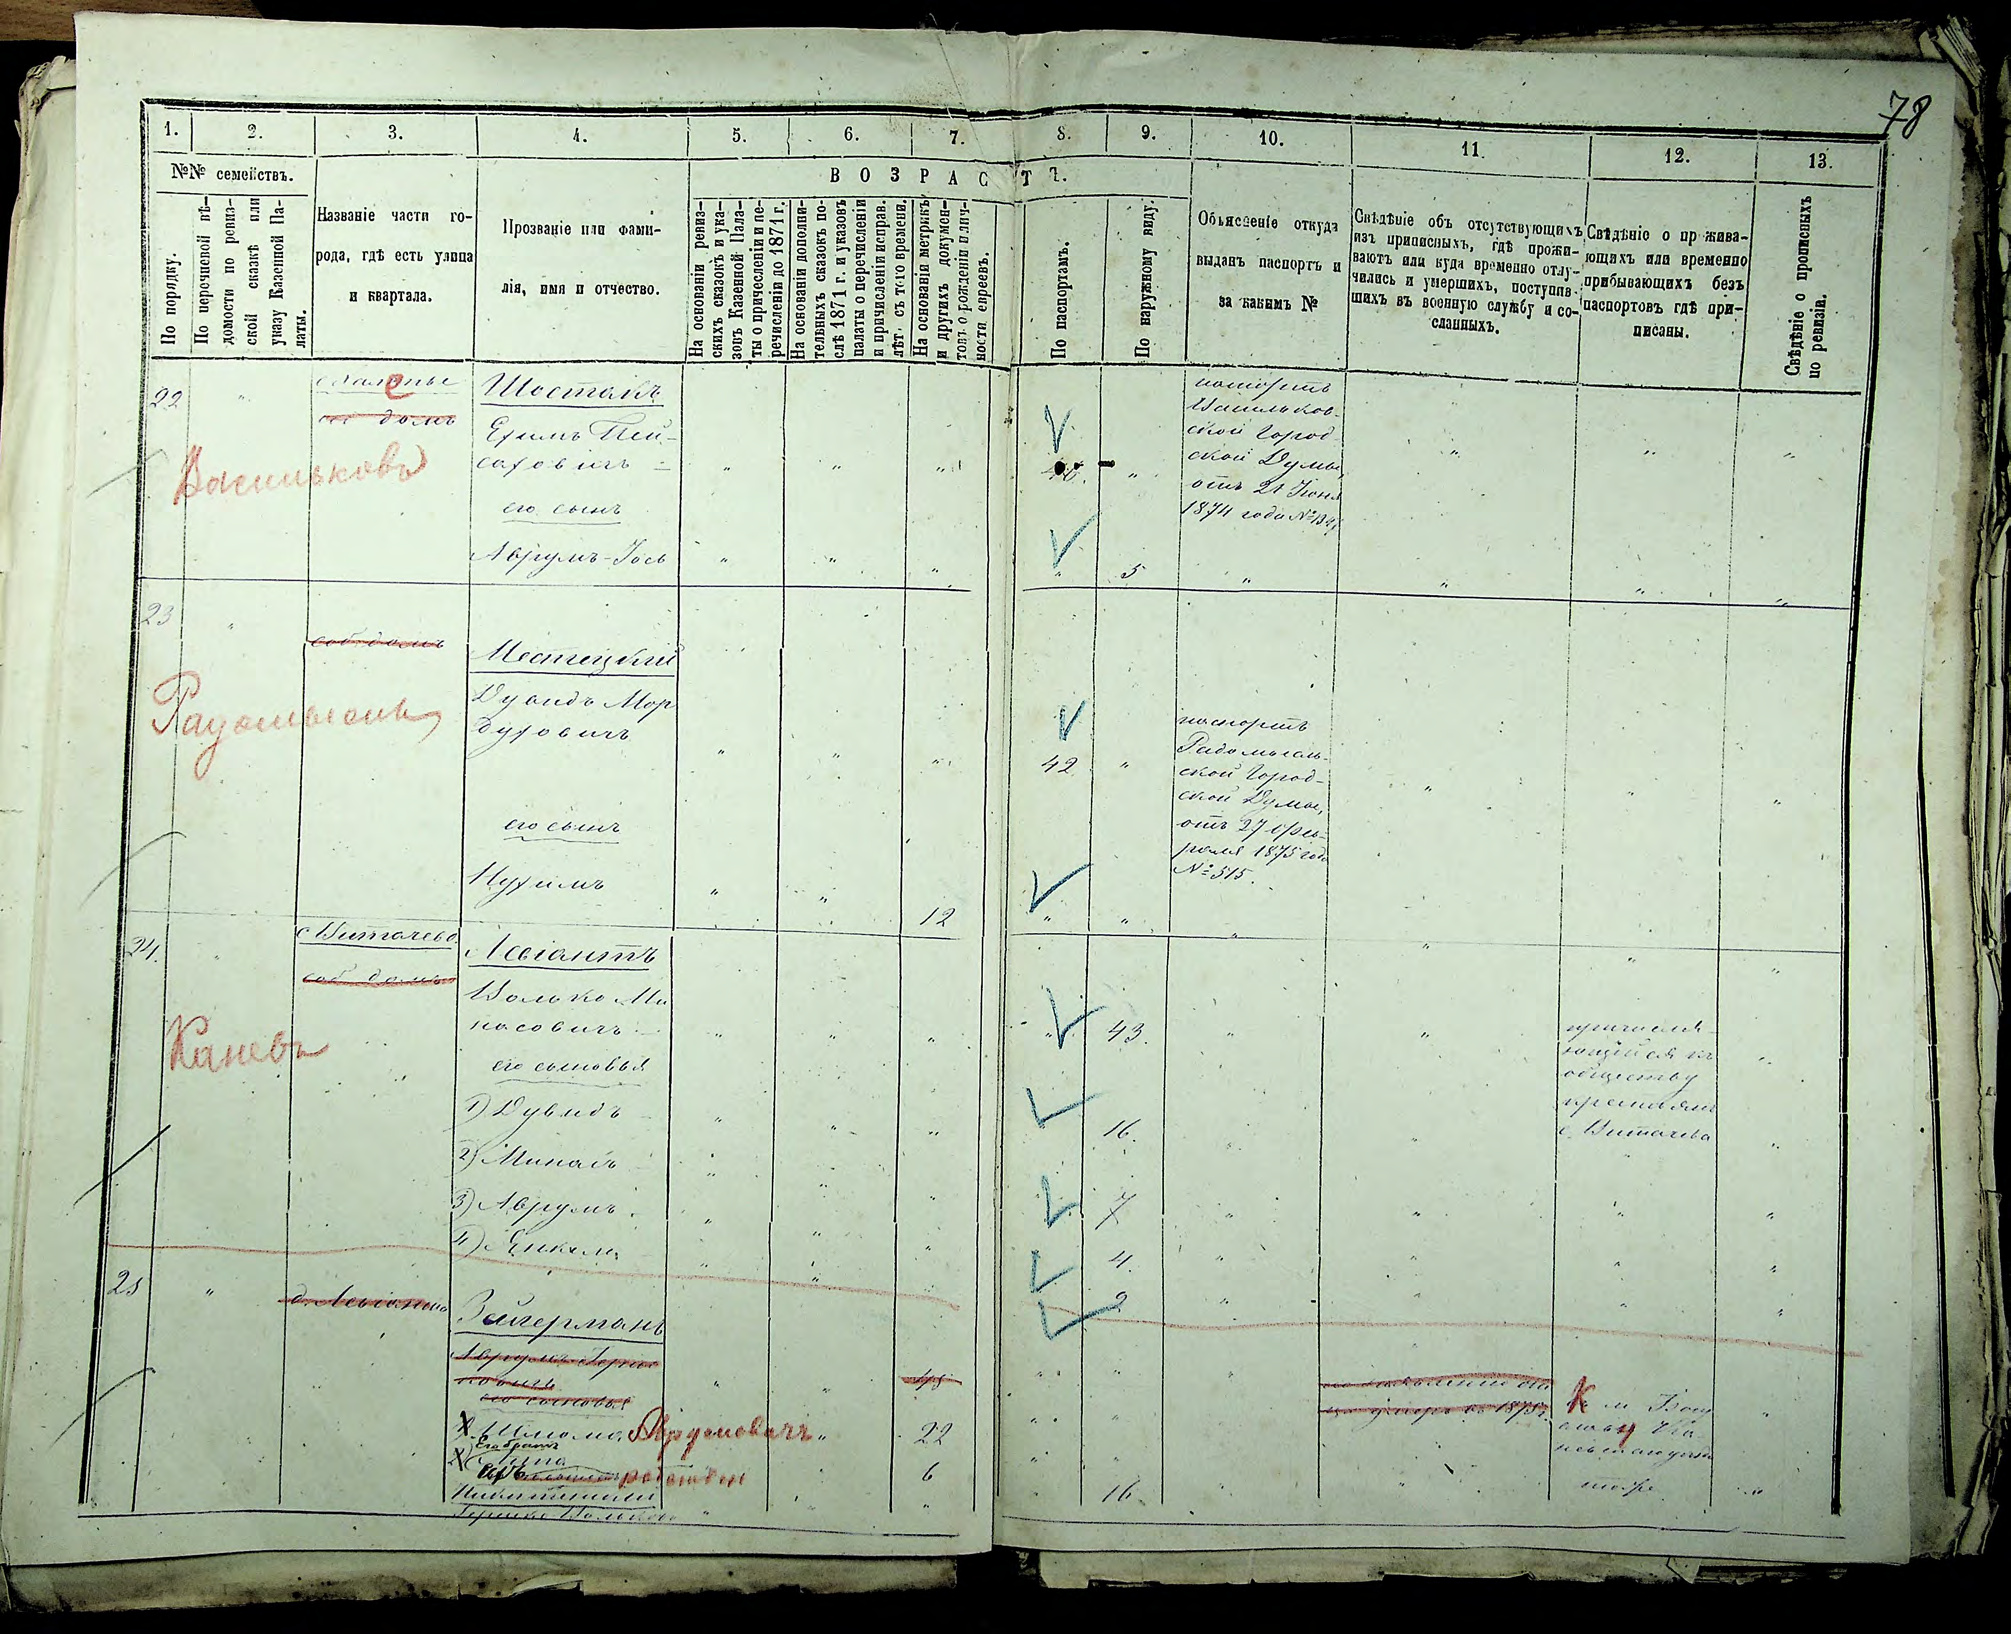 78
1. 2. 3. 4. 5. 6. 7. 8. 9. 10. 11. 12. 13.
№№ семействъ.
ВОЗРАСТЪ.
По порядку.
По перечневой вѣ-
домости по ревиз-
ской сказкѣ или
указу Казенной Па-
латы.
Названіе части го-
рода, гдѣ есть улица
и квартала.
Прозваніе или фами-
лія, имя и отчество.
На основаніи ревиз-
скихъ сказокъ и ука-
зовъ Казенной Пала-
ты о причисленіи и пе-
речисленіи до 1871 г.
На основаніи дополни-
тельныхъ сказокъ по-
слѣ 1871 г. и указовъ
палаты о перечисленіи
и причисленіи исправ.
лѣт. съ того времени.
На основаніи метрикъ
и другихъ докумен-
товъ о рожденіи и лич-
ности евреевъ.
По паспортамъ.
По наружному виду.
Объясненіе откуда
выданъ паспортъ и
за какимъ №
Свѣдѣніе объ отсутствующихъ
изъ приписныхъ, гдѣ прожи-
ваютъ или куда временно отлу-
чились и умершихъ, поступив-
шихъ въ военную службу и со-
сланныхъ.
Свѣдѣніе о прожива-
ющихъ или временно
прибывающихъ безъ
паспортовъ гдѣ при-
писаны.
Свѣдѣніе о прописныхъ
по ревизіи.
22
домъ
Васильковъ
Шостакъ
Ехимъ Пей-
саховичъ
его сынъ
Аврумъ-Іось
5
паспортъ
Васильков-
ской Город-
ской Думы,
отъ 21 Іюня
1874 года №
23
соб. домъ
Радомысль
Местецкій
Дувидъ Мор
духовичъ
42
его сынъ
Нухимъ
12
паспортъ
Радомысль-
ской Город-
ской Думы,
отъ 27 Фев-
раля 1875 года
№ 515.
24.
с. Витачево
соб. домъ
Каневъ
Левіантъ
Волько Ми
насовичъ
43.
его сыновья
1) Дувидъ
16.
2) Минасъ
7
3) Аврумъ
4.
4) Янкель
2
причисля-
ющійся къ
обществу
крестьянъ
с. Витачева
25
Зейгерманъ
его сыновья
48
Шлома Аврумовичъ
22
Его братъ
6
16
тоже
Гершко Вольков